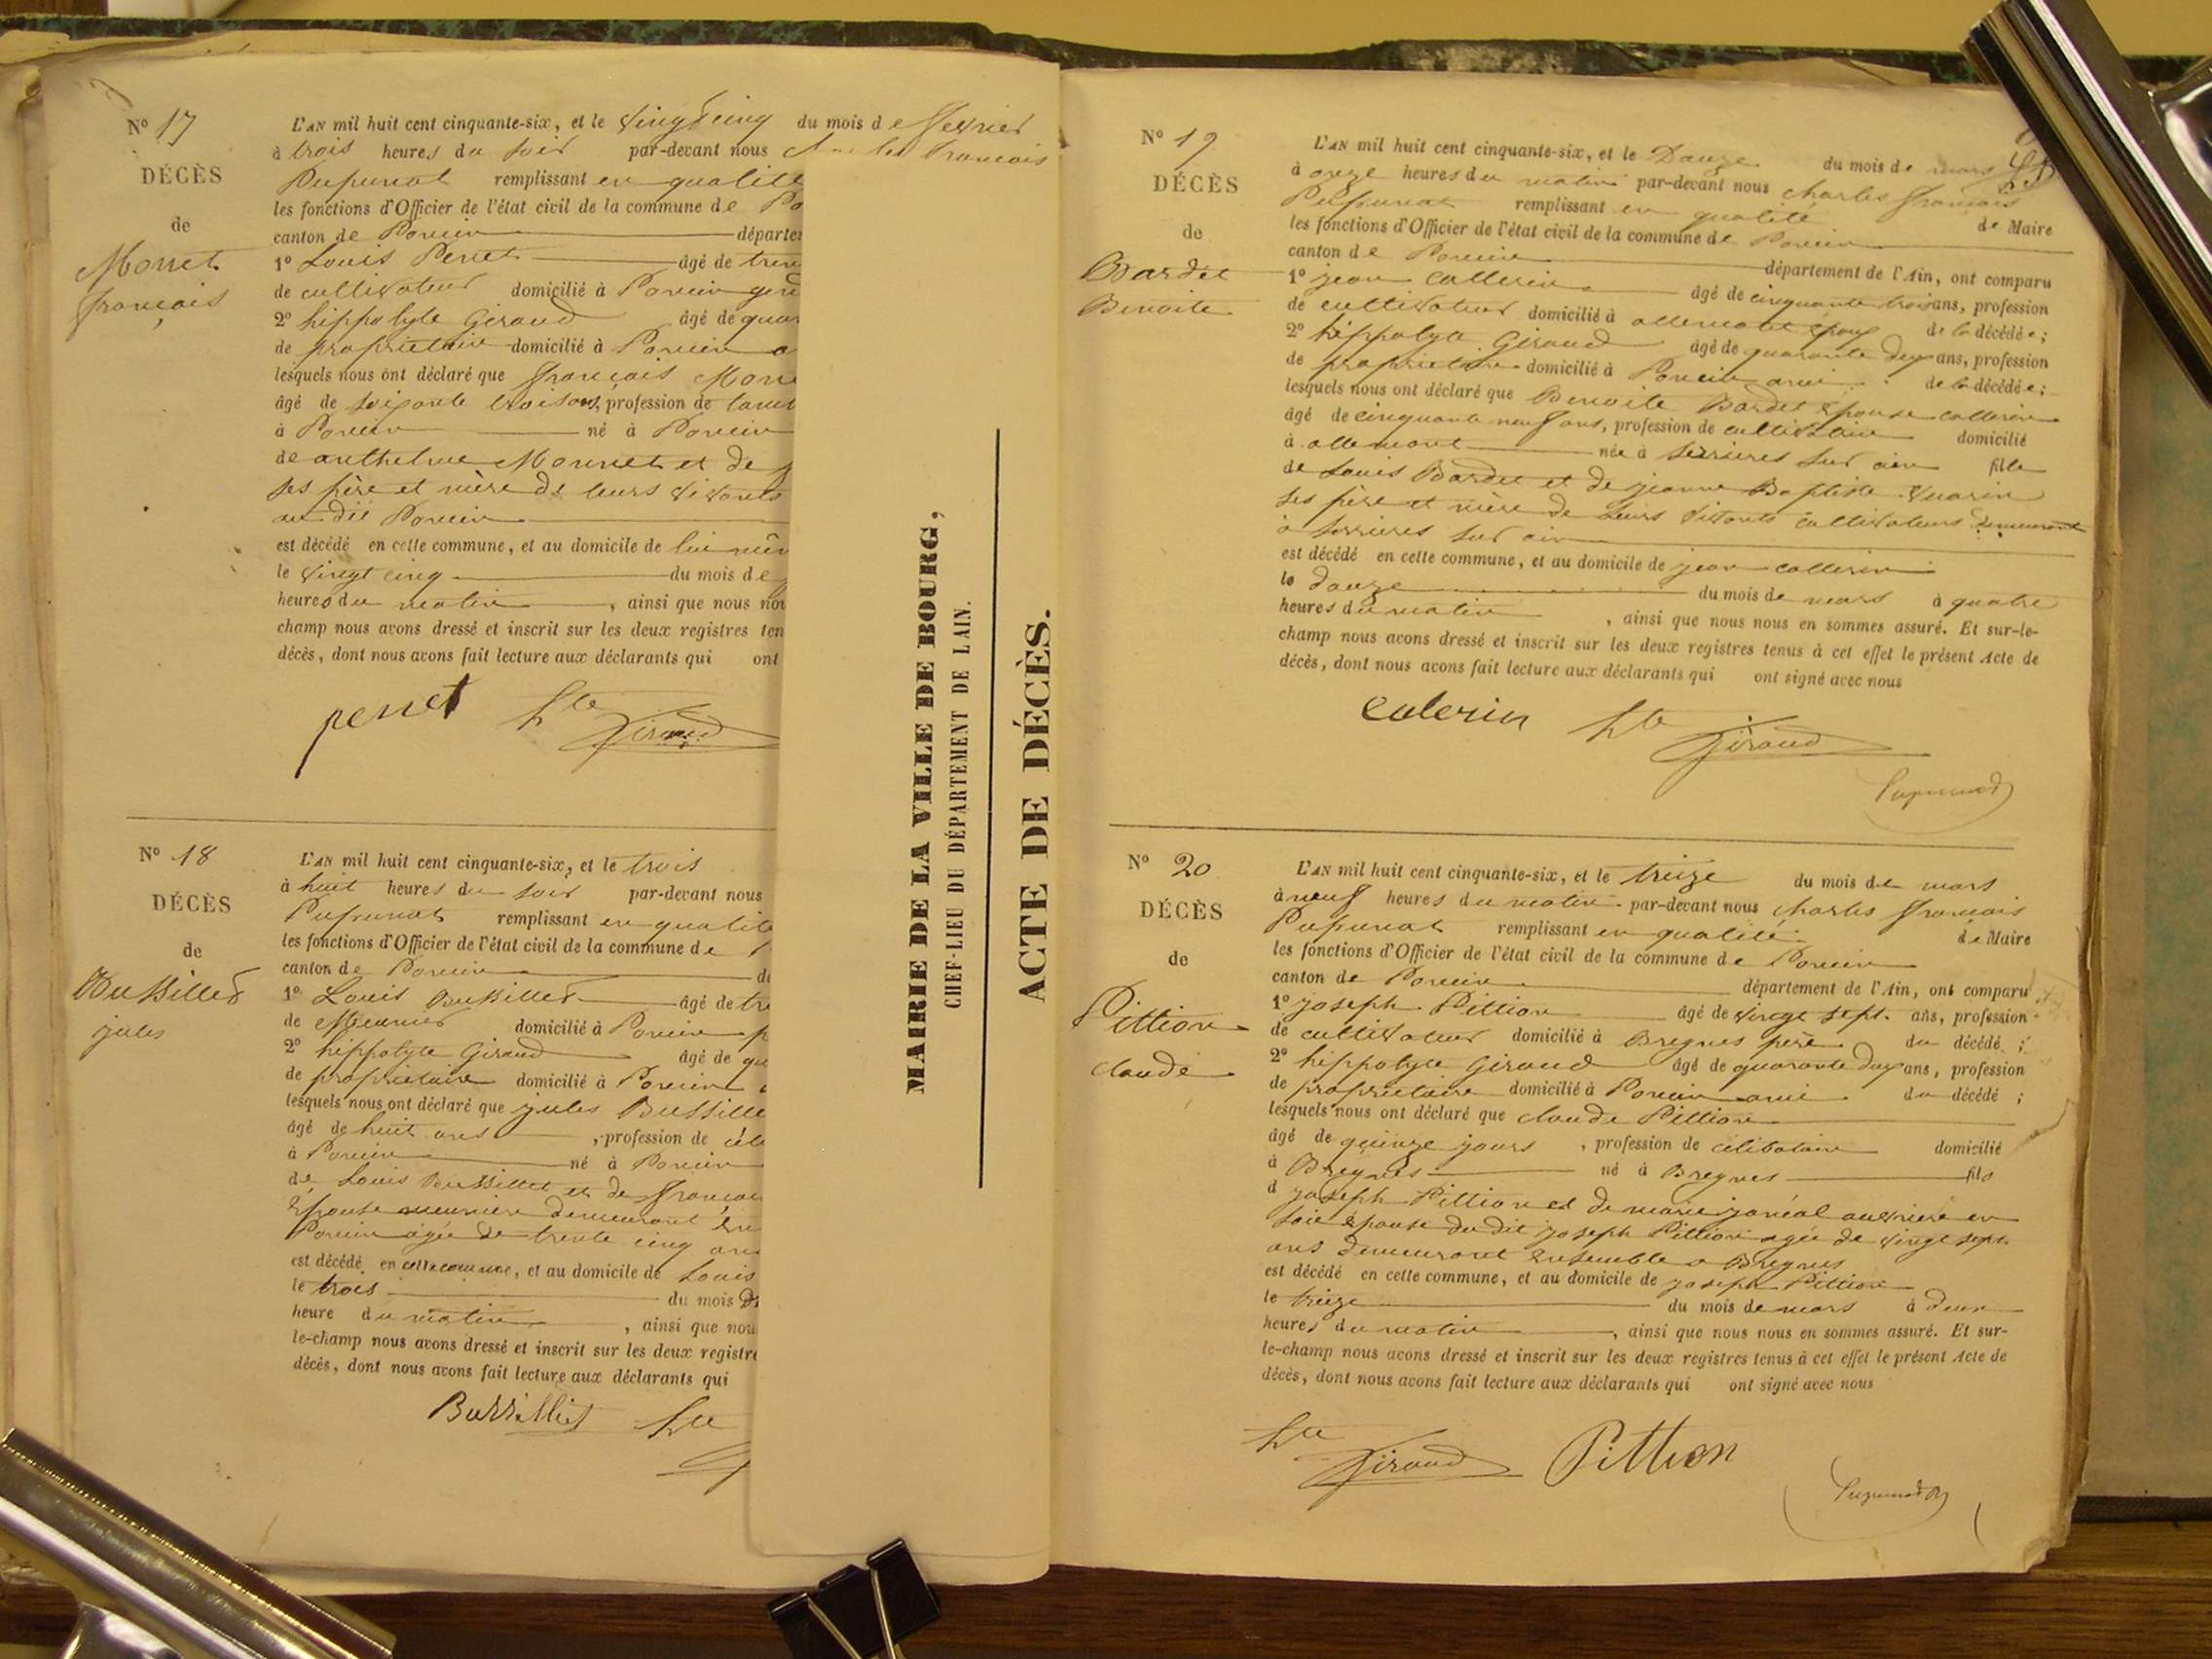 Nº 17
DÉCÈS
de
Monet
françois
L'AN mil huit cent cinquante-six, et le vingt cinq du mois de fevrier
à trois heures du soir par-devant nous françois
Pupunat remplissant en qualité
les fonctions d'Officier de l'état civil de la commune de Po
canton de Poncin départe
1º Louis Penet âgé de tren
de cultivateur domicilié à Poncin gend
2º hippolyte Giraud âgé de quar
de propriétaire domicilié à Poncin a
lesquels nous ont déclaré que françois Mon
âgé de soixante trois ans, profession de
à Poncin né à Poncin
de anthelme Monnet et de
ses père et mère de leurs vivants
au dit Poncin
est décédé en cette commune, et au domicile de lui mêm
le vingt cinq du mois de
heures du matin, ainsi que nous nou
champ nous avons dressé et inscrit sur les deux registres ten
décès, dont nous avons fait lecture aux déclarants qui ont
penet hte Giraud
Nº 18
DÉCÈS
de
Bussillet
jules
L'AN mil huit cent cinquante-six, et le trois
à huit heures du soir par-devant nous
Pupunat remplissant en qualité
les fonctions d'Officier de l'état civil de la commune de P
canton de Poncin d
1º Louis Bussillet âgé de tre
de Meunier domicilié à Poncin p
2º hippolyte Giraud âgé de qu
de propriétaire domicilié à Poncin
lesquels nous ont déclaré que jules Bussille
âgé de huit ans, profession de céli
à Poncin né à Poncin
de Louis Bussillet et de françoi
épouse meunière demeurant en
Poncin agée de trente cinq ans
est décédé en cette commune, et au domicile de Louis
le trois du mois d
heure du matin, ainsi que nou
le-champ nous avons dressé et inscrit sur les deux registre
décès, dont nous avons fait lecture aux déclarants qui
Bussillet hte
MAIRIE DE LA VILLE DE BOURG,
CHEF-LIEU DU DÉPARTEMENT DE L'AIN.
ACTE DE DÉCÈS.
Nº 19
DÉCÈS
de
Bardet
Benoite
L'AN mil huit cent cinquante-six, et le Douze du mois de mars
à onze heures du matin par-devant nous charles françois
Pupunat remplissant en qualité de Maire
les fonctions d'Officier de l'état civil de la commune de Poncin
canton de Poncin département de l'Ain, ont comparu
1º jean Collerin âgé de cinquante trois ans, profession
de cultivateur domicilié à allement époux de la décédée;
2º hippolyte Giraud âgé de quarante deux ans, profession
de propriétaire domicilié à Poncin ami de la décédée;
lesquels nous ont déclaré que Benoite Bardet épouse collerin
âgé de cinquante neuf ans, profession de cultivatrice domicilié
à allement née à serrieres sur ain fille
de Louis Bardet et de jeanne Baptiste
ses père et mère de leurs vivants cultivateurs demeurant
à serrieres sur ain
est décédé en cette commune, et au domicile de jean collerin
le douze du mois de mars à quatre
heures du matin, ainsi que nous nous en sommes assuré. Et sur-le-
champ nous avons dressé et inscrit sur les deux registres tenus à cet effet le présent Acte de
décès, dont nous avons fait lecture aux déclarants qui ont signé avec nous
Colerin hte Giraud
Pupunat
Nº 20
DÉCÈS
de
Pittion
claude
L'AN mil huit cent cinquante-six, et le treize du mois de mars
à neuf heures du matin par-devant nous charles françois
Pupunat remplissant en qualité de Maire
les fonctions d'Officier de l'état civil de la commune de Poncin
canton de Poncin département de l'Ain, ont comparu
1º joseph Pittion âgé de vingt sept ans, profession
de cultivateur domicilié à Bregnes père du décédé;
2º hippolyte Giraud âgé de quarante deux ans, profession
de propriétaire domicilié à Poncin ami du décédé;
lesquels nous ont déclaré que claude Pittion
âgé de quinze jours, profession de célibataire domicilié
à Bregnes né à Bregnes fils
d joseph Pittion et de marie ouvrière en
soie épouse du dit joseph Pittion agée de vingt sept
ans demeurant ensemble a Bregnes
est décédé en cette commune, et au domicile de joseph Pittion
le treize du mois de mars à deux
heures du matin, ainsi que nous nous en sommes assuré. Et sur-
le-champ nous avons dressé et inscrit sur les deux registres tenus à cet effet le présent Acte de
décès, dont nous avons fait lecture aux déclarants qui ont signé avec nous
hte Giraud Pittion
Pupunat